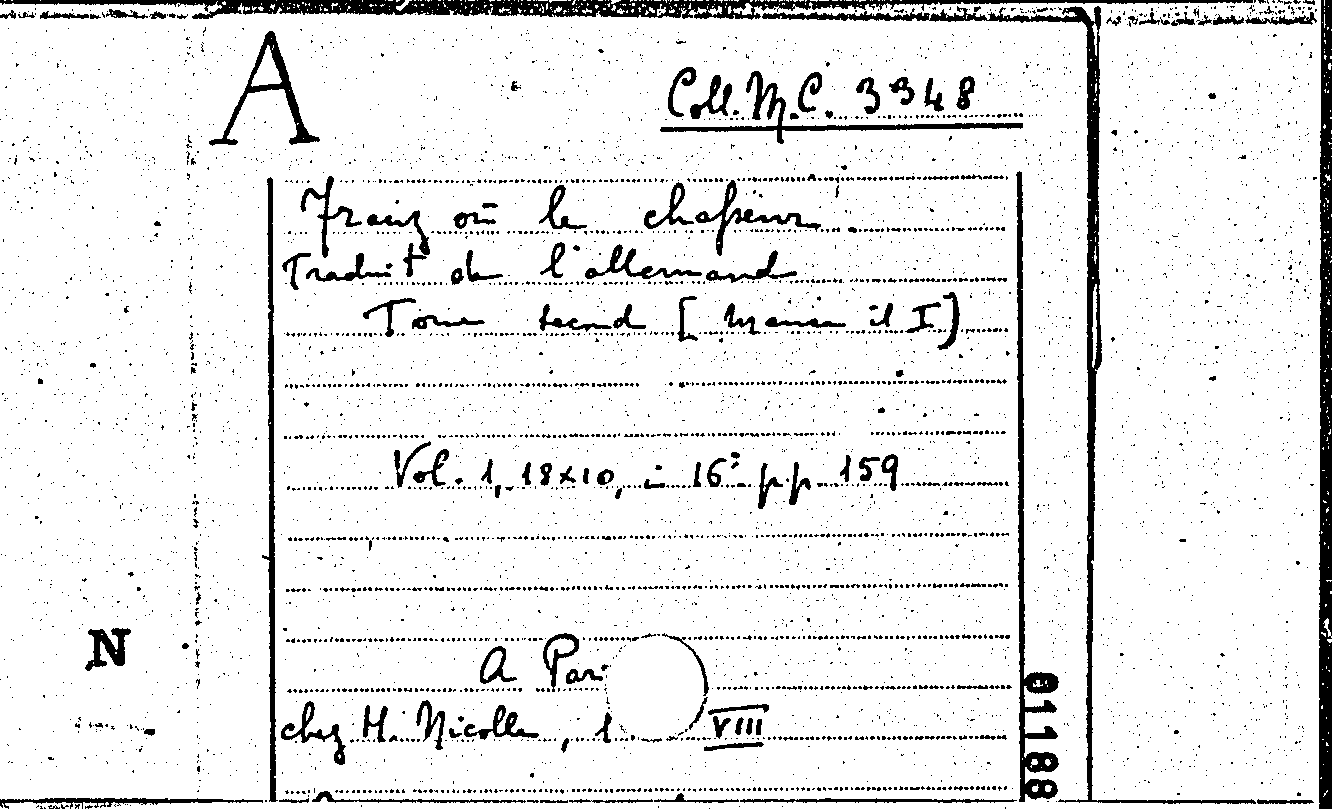 A
Coll. M.C. 3348
Franz où le chasseur
Traduit de l'allemand
Tome second [ manca il I ]
Vol. 1, 18x10, in 16° pp. 159
A Pari
chez H. Nicolle, 1 VIII
N
01188